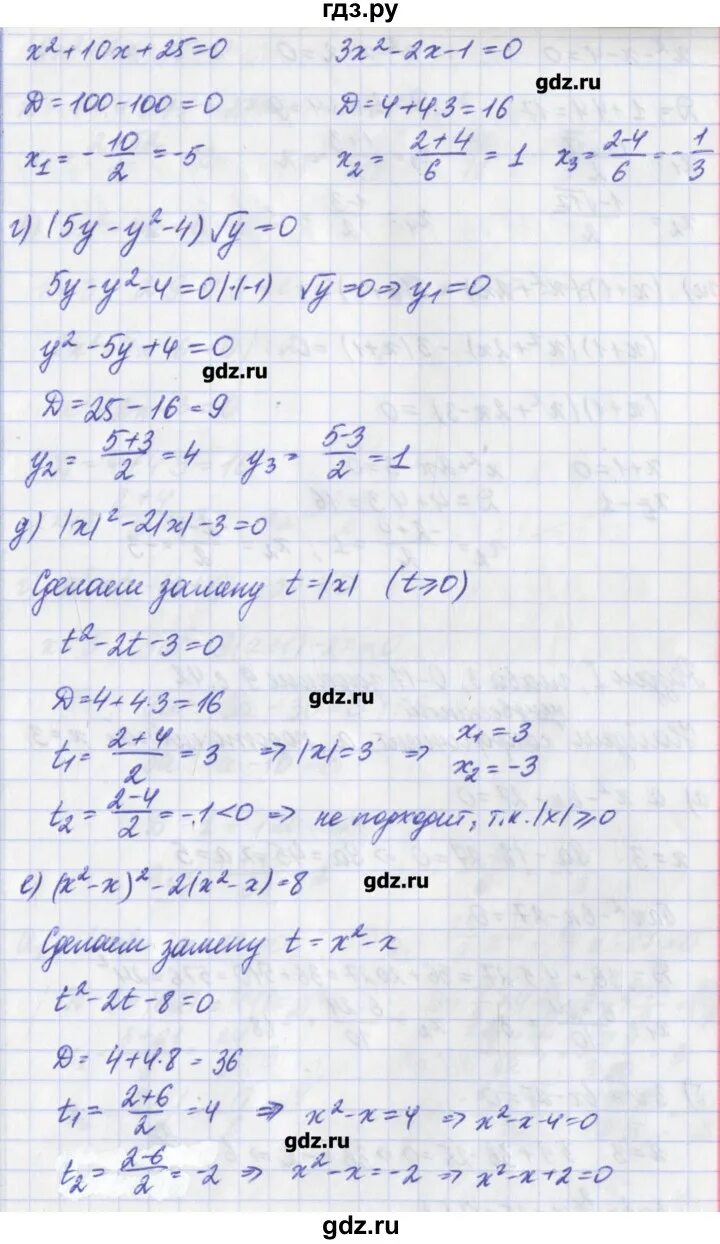 гдз.ру
x²+10x+25=0 3x²-2x-1=0
gdz.ru
D=100-100=0 D=4+4·3=16
x₁= -10/2 =-5 x₂= (2+4)/6 = 1 x₃= (2-4)/6 =-1/3
г) (5y-y²-4)√y=0
5y-y²-4=0 |·(-1) √y=0⇒y₁=0
y²-5y+4=0
gdz.ru
D=25-16=9
y₂= (5+3)/2 =4 y₃= (5-3)/2 =1
д) |x|²-2|x|-3=0
Сделаем замену t=|x| (t⩾0)
t²-2t-3=0
gdz.ru
D=4+4·3=16
t₁= (2+4)/2 =3 ⇒|x|=3 ⇒ x₁=3
x₂=-3
t₂= (2-4)/2 =-1<0 ⇒ не подходит, т.к. |x|⩾0
е) (x²-x)²-2(x²-x)=8
gdz.ru
Сделаем замену t=x²-x
t²-2t-8=0
D= 4+4·8=36
t₁= (2+6)/2 =4 ⇒ x²-x=4 ⇒x²-x-4=0
gdz.ru
t₂= (2-6)/2 =-2 ⇒ x²-x=-2 ⇒ x²-x+2=0
gdz.ru